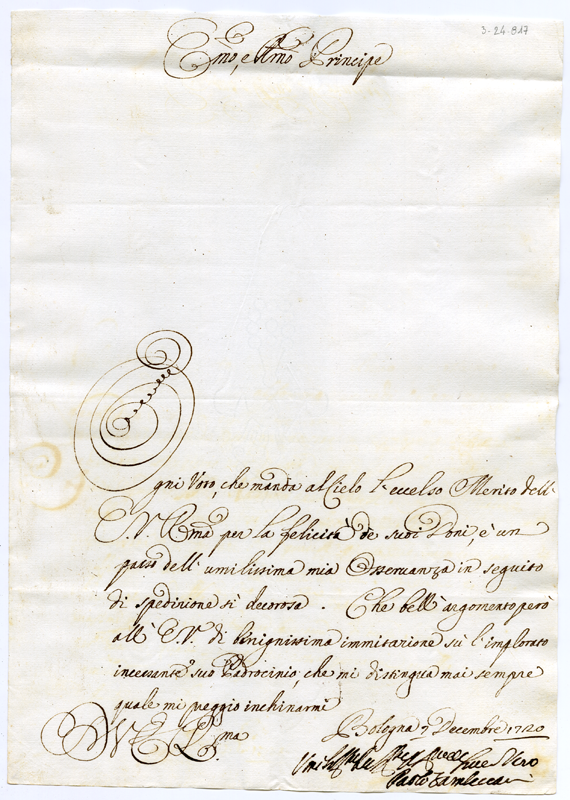 3-24-817
Emo, e Rmo Principe
Ogni Voto, che manda al Cielo l'eccelso Merito dell'
E.V. Rma per la felicità de suoi Doni, è un
passo dell' umilissima mia Osservanza in seguito
di spedizione sì decorosa. Che bell' argomento però
all' E.V. di benignissima immitazione sù l' implorato
incessante suo Padrocinio, che mi distingua mai sempre
quale mi veggio inchinarmi
Bologna 7 Decembre 1720
Vro
Paolo Zambeccari